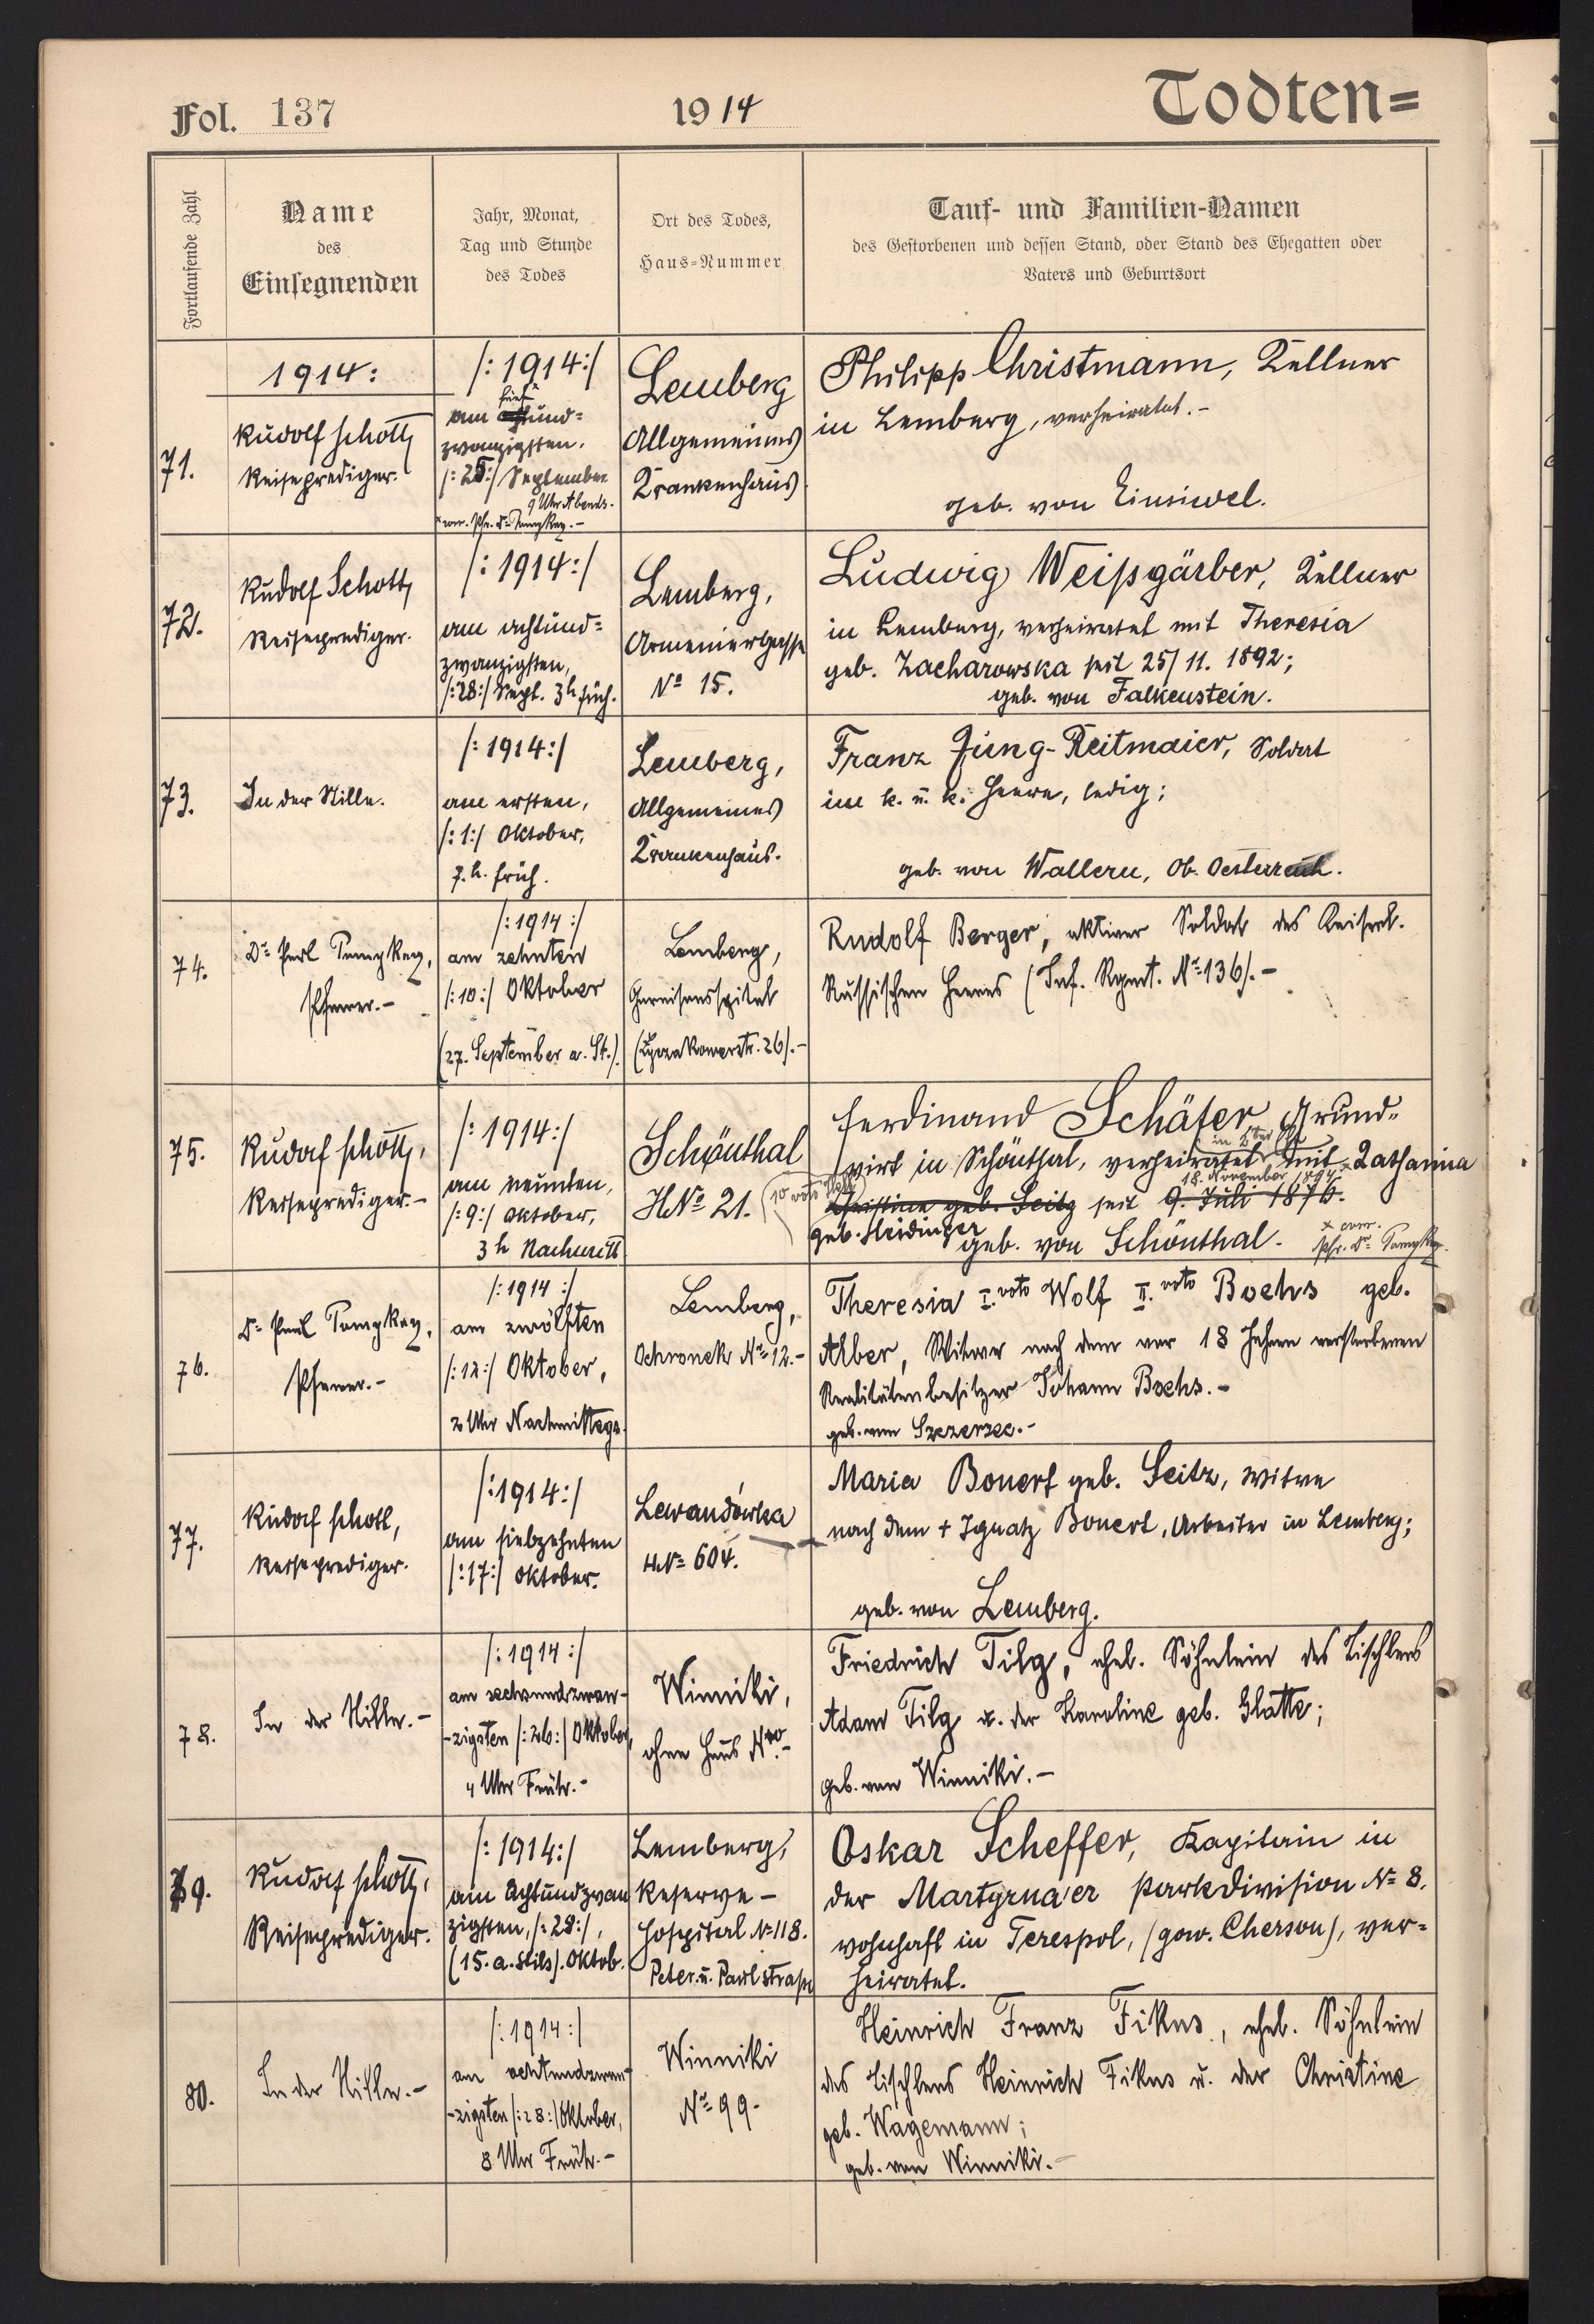 Fol. 137
1914
Todten=
Fortlaufende Zahl
Name
des
Einsegnenden
Jahr, Monat,
Tag und Stunde
des Todes
Ort des Todes,
Haus=Nummer
Tauf- und Familien-Namen
des Gestorbenen und dessen Stand, oder Stand des Ehegatten oder
Vaters und Geburtsort
1914:
71.
Rudolf Schott,
Reiseprediger.
/:1914:/
fünf x
am und=
zwanzigsten,
/:25:/ September
9 Uhr Abends.
x corr. Pfr. Dr
Lemberg
Allgemeines
Krankenhaus
Philipp Christmann, Kellner
in Lemberg, verheiratet.-
geb. von Einsiwel.
72.
Rudolf Schott,
Reiseprediger.
/:1914:/
am achtund=
zwanzigsten,
/:28:/ Sept. 3h früh.
Lemberg,
Armeniergasse
No 15.
Ludwig Weißgärber, Kellner
in Lemberg, verheiratet mit Theresia
geb. Zacharowska seit 25/11. 1892;
geb. von Falkenstein.
73.
In der Stille.
/:1914:/
am ersten,
/:1:/ Oktober,
7.h. früh.
Lemberg,
Allgemeines
Krankenhaus.
Franz Jung-Reitmaier, Soldat
im k. u. k. Heere, ledig;
geb. von Wallern, Ob. Oesterreich.
74.
Dr Paul
Pfarrer.-
/:1914:/
am zehnten
/:10:/ Oktober
(27. September a. St.)
Lemberg,
Garnisonsspital
(Łyczakowerstr. 26).-
Rudolf Berger, aktiver Soldat des Kaiserl.
Russischen Heeres (Inf. Rgmt. No 136).-
75.
Rudolf Schott,
Reiseprediger.-
/:1914:/
am neunten,
/:9:/ Oktober,
3 h Nachmitt
Schönthal
H.No 21.
Ferdinand Schäfer, Grund=
in 2ter Ehe
wirt in Schönthal, verheiratet mit Katharina
18. November 1894 x
Christine geb. Seitz seit 9. Juli 1876.
geb. Heidinger
geb. von Schönthal.
x corr.
Pfr. Dr
76.
Dr Paul
Pfarrer.-
/:1914:/
am zwölften
/:12:/ Oktober,
2 Uhr Nachmittags.
Lemberg,
Ochronek No 12.-
Theresia I. voto Wolf II. voto Bochs geb.
Alber, Witwe nach dem vor 18 Jahren verstorbenen
Realitätenbesitzer Johann Bochs.-
geb. von Szczerzec.-
77.
Rudolf Schott,
Reiseprediger.
/:1914:/
am siebzehnten
/:17:/ Oktober.
Lewandówka
H.No 604.
Maria Bonert geb. Seitz, Witwe
nach dem + Ignatz Bonert, Arbeiter in Lemberg;
geb. von Lemberg.
78.
In der Stille.-
/:1914:/
am sechsundzwan-
-zigsten /:26:/ Oktober,
4 Uhr Früh.-
Winniki,
ohne Haus Nro.-
Friedrich Tilg, ehel. Söhnlein des Tischlers
Adam Tilg u. der Karoline geb. Glatte;
geb. von Winniki.-
79.
Rudolf Schott,
Reiseprediger.
/:1914:/
am Achtundzwan
zigsten, /:28:/,
(15. a. Stils). Oktob.
Lemberg,
Reserve-
Hospital No 118.
Peter. u. Paul straße
Oskar Scheffer, Kapitain in
der Martyrna'er Parkdivision No 8,
wohnhaft in Terespol, (gow. Cherson), ver=
heiratet.
80.
In der Stille.-
/:1914:/
am achtundzwan-
-zigsten /:28:/ Oktober,
8 Uhr Früh.-
Winniki
No 99.
Heinrich Franz Fikus, ehel. Söhnlein
des Tischlers Heinrich Fikus u. der Christine
geb. Wagemann;
geb. von Winniki.-